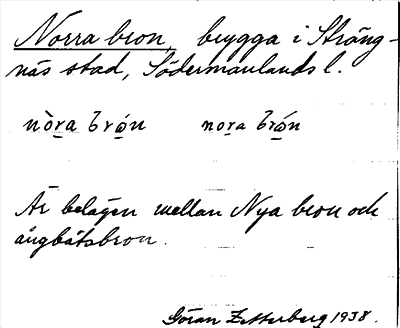 Norra bron, brygga i Sträng-
näs stad, Södermanlands l.
nò̱ra brǿ̱n nọra brǿ̱n
Är belägen mellan Nya bron och
ångbåtsbron.
Göran Zetterberg 1938.